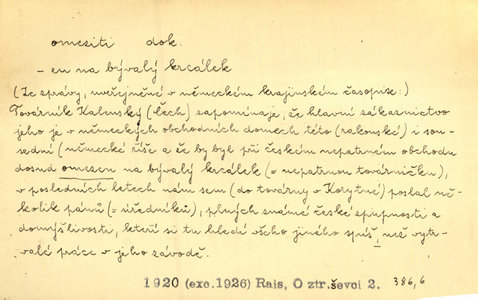 omeziti dok.
- en na bývalý krcálek
(Ze zprávy, uveřejněné v německém krajinském časopise:)
Továrník Kabenský (Čech) zapomíná, že hlavní zákaznictvo
jeho je v německých obchodních domech této (rakouské) i sou-
sední (německé říše a že by byl při českém nepatrném obchodu
dosud omezen na bývalý krcálek (= nepatrnou továrničku),
v posledních letech nám sem (do továrny v Korytné) poslal ně-
kolik pánů (= úředníků), plných známé české zpupnosti a
domýšlivosti, kteří si tu hledí všeho jiného spíš, než vytr-
valé práce v jeho závodě.
1920 (exc.1926) Rais, O ztr.ševci 2. 386,6